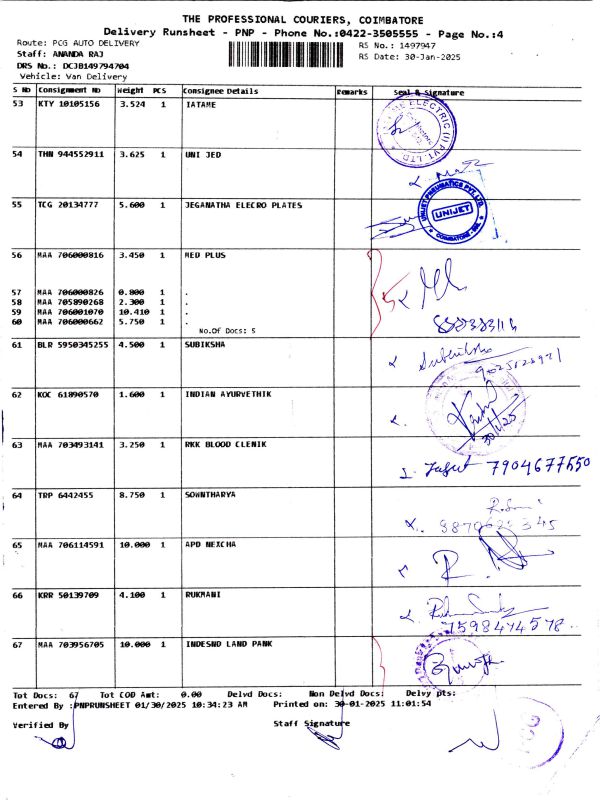 THE PROFESSIONAL COURIERS, COIMBATORE
Delivery Runsheet - PNP - Phone No.:0422-3505555 - Page No.:4
Route: PCG AUTO DELIVERY
RS No.: 1497947
Staff: ANANDA RAJ
RS Date: 30-Jan-2025
DRS No.: DCJB149794704
Vehicle: Van Delivery
S No Consignment No Weight PCS Consignee Details Remarks Seal & Signature
53 KTY 10105156 3.524 1 IATAME
54 THN 944552911 3.625 1 UNI JED
55 TCG 20134777 5.600 1 JEGANATHA ELECRO PLATES
UNIJET PNEUMATICS PVT.LTD.
UNIJET
56 MAA 706000816 3.450 1 MED PLUS
57 MAA 706000826 0.800 1 .
58 MAA 705890268 2.300 1 .
59 MAA 706001070 10.410 1 .
60 MAA 706000662 5.750 1 .
No.Of Docs: 5
61 BLR 5950345255 4.500 1 SUBIKSHA
62 KOC 61890570 1.600 1 INDIAN AYURVETHIK
30/1/25
63 MAA 703493141 3.250 1 RKK BLOOD CLENIK
7904677550
64 TRP 6442455 8.750 1 SOWNTHARYA
65 MAA 706114591 10.000 1 APD NEXCHA
66 KRR 50139709 4.100 1 RUKMANI
7598474578
67 MAA 703956705 10.000 1 INDESND LAND PANK
Tot Docs: 67 Tot COD Amt: 0.00 Delvd Docs: Non Delvd Docs: Delvy pts:
Entered By :PNPRUNSHEET 01/30/2025 10:34:23 AM Printed on: 30-01-2025 11:01:54
Verified By Staff Signature